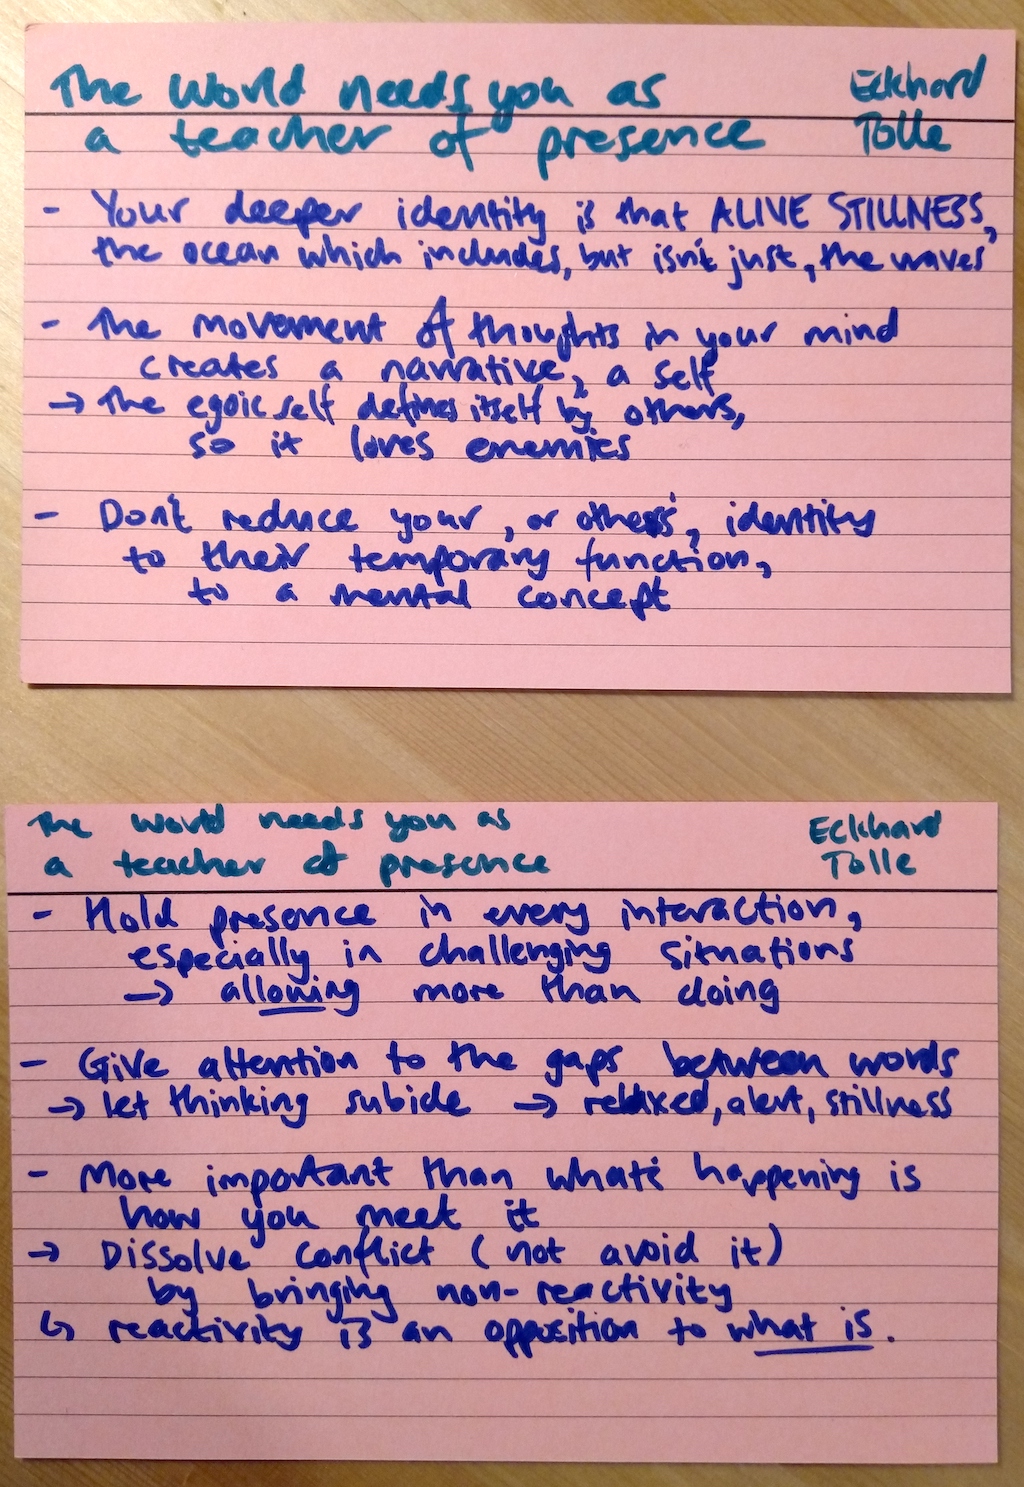 The World needs you as
a teacher of presence
Eckhard
Tolle
- Your deeper identity is that ALIVE STILLNESS,
the ocean which includes, but isn't just, the waves
- The movement of thoughts in your mind
creates a narrative, a self
→ The egoic self defines itself by others,
so it loves enemies
- Don't reduce your, or others', identity
to their temporary function,
to a mental concept
The world needs you as
a teacher of presence
Eckhard
Tolle
- Hold presence in every interaction,
especially in challenging situations
→ allowing more than doing
- Give attention to the gaps between words
→ let thinking subide → relaxed, alert, stillness
- More important than what's happening is
how you meet it
→ Dissolve conflict (not avoid it)
by bringing non-reactivity
↳ reactivity is an opposition to what is.